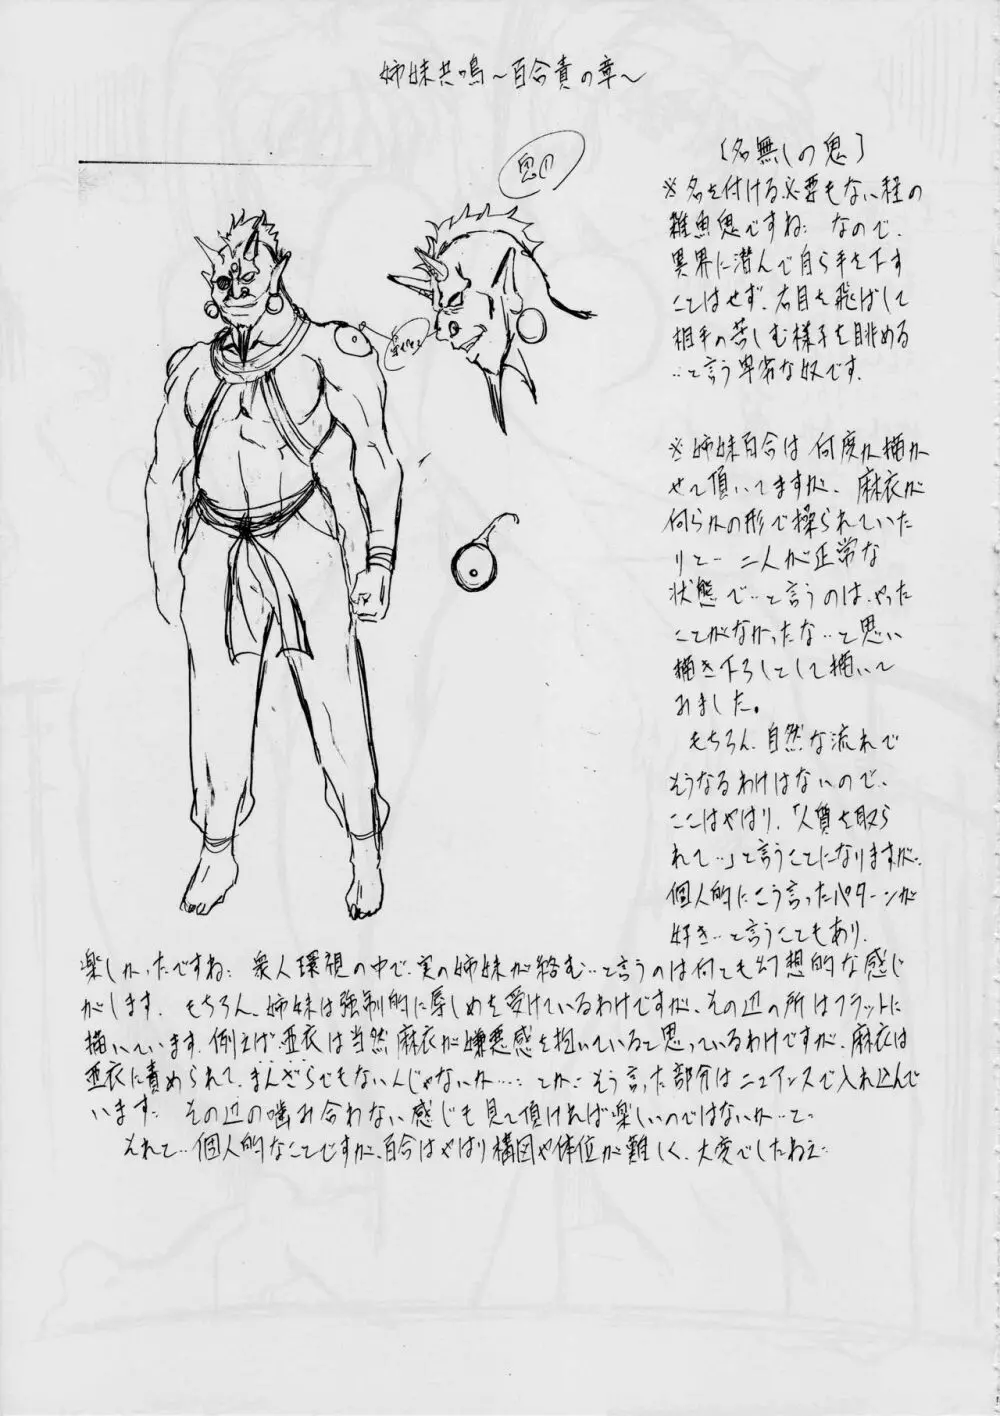 姉妹共鳴～百合責の章～
鬼(1)
【名無しの鬼】
※名を付ける必要もない程の
雑魚鬼ですね… なので、
異界に潜んで自ら手を下す
ことはせず、右目を飛ばして
相手の苦しむ様子を眺める
…と言う卑劣な奴です。
※姉妹百合は何度か描か
せて頂いてますが、麻衣が
何らかの形で操られていた
りと… 二人が正常な
状態で…と言うのは、やった
ことがなかったな…と思い
描き下ろしとして描いて
みました。
もちろん、自然な流れで
そうなるわけはないので、
ここはやはり、「人質を取ら
れて…」と言うことになりますが…
個人的にこう言ったパターンが
好き…と言うこともあり、
楽しかったですね… 衆人環視の中で、実の姉妹が絡む…と言うのは何とも幻想的な感じ
がします。 もちろん、姉妹は強制的に辱しめを受けているわけですが、その辺の所はフラットに
描いています。例えば、亜衣は当然麻衣が嫌悪感を抱いていると思っているわけですが、麻衣は
亜衣に責められて、まんざらでもないんじゃないか…… とか… そう言った部分はニュアンスで入れ込んで
います… その辺の噛み合わない感じも見て頂ければ楽しいのではないか…と…
それと… 個人的なことですが、百合はやはり構図や体位が難しく、大変でしたねぇ…